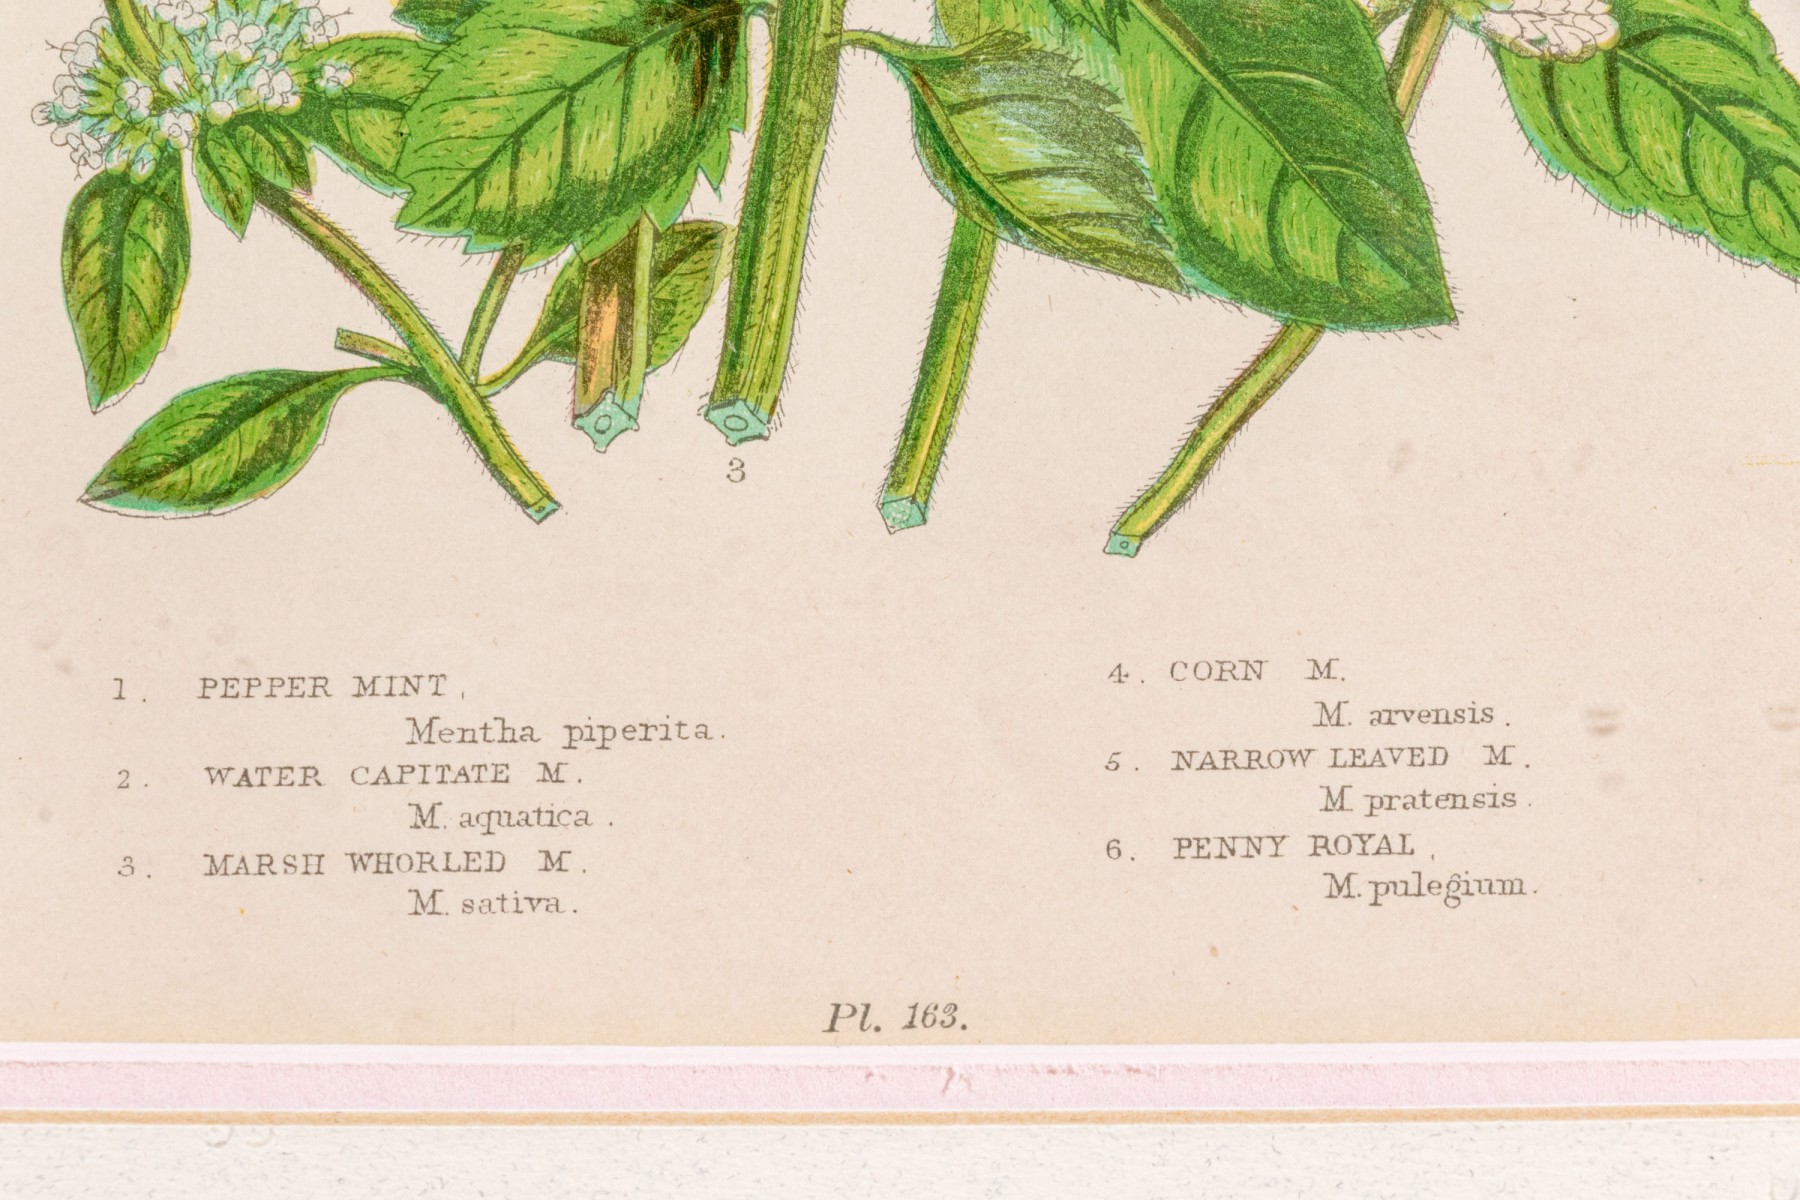 3
1. PEPPER MINT,
Mentha piperita.
2. WATER CAPITATE M.
M. aquatica.
3. MARSH WHORLED M.
M. sativa.
4. CORN M.
M. arvensis.
5. NARROW LEAVED M.
M. pratensis.
6. PENNY ROYAL,
M. pulegium.
Pl. 163.